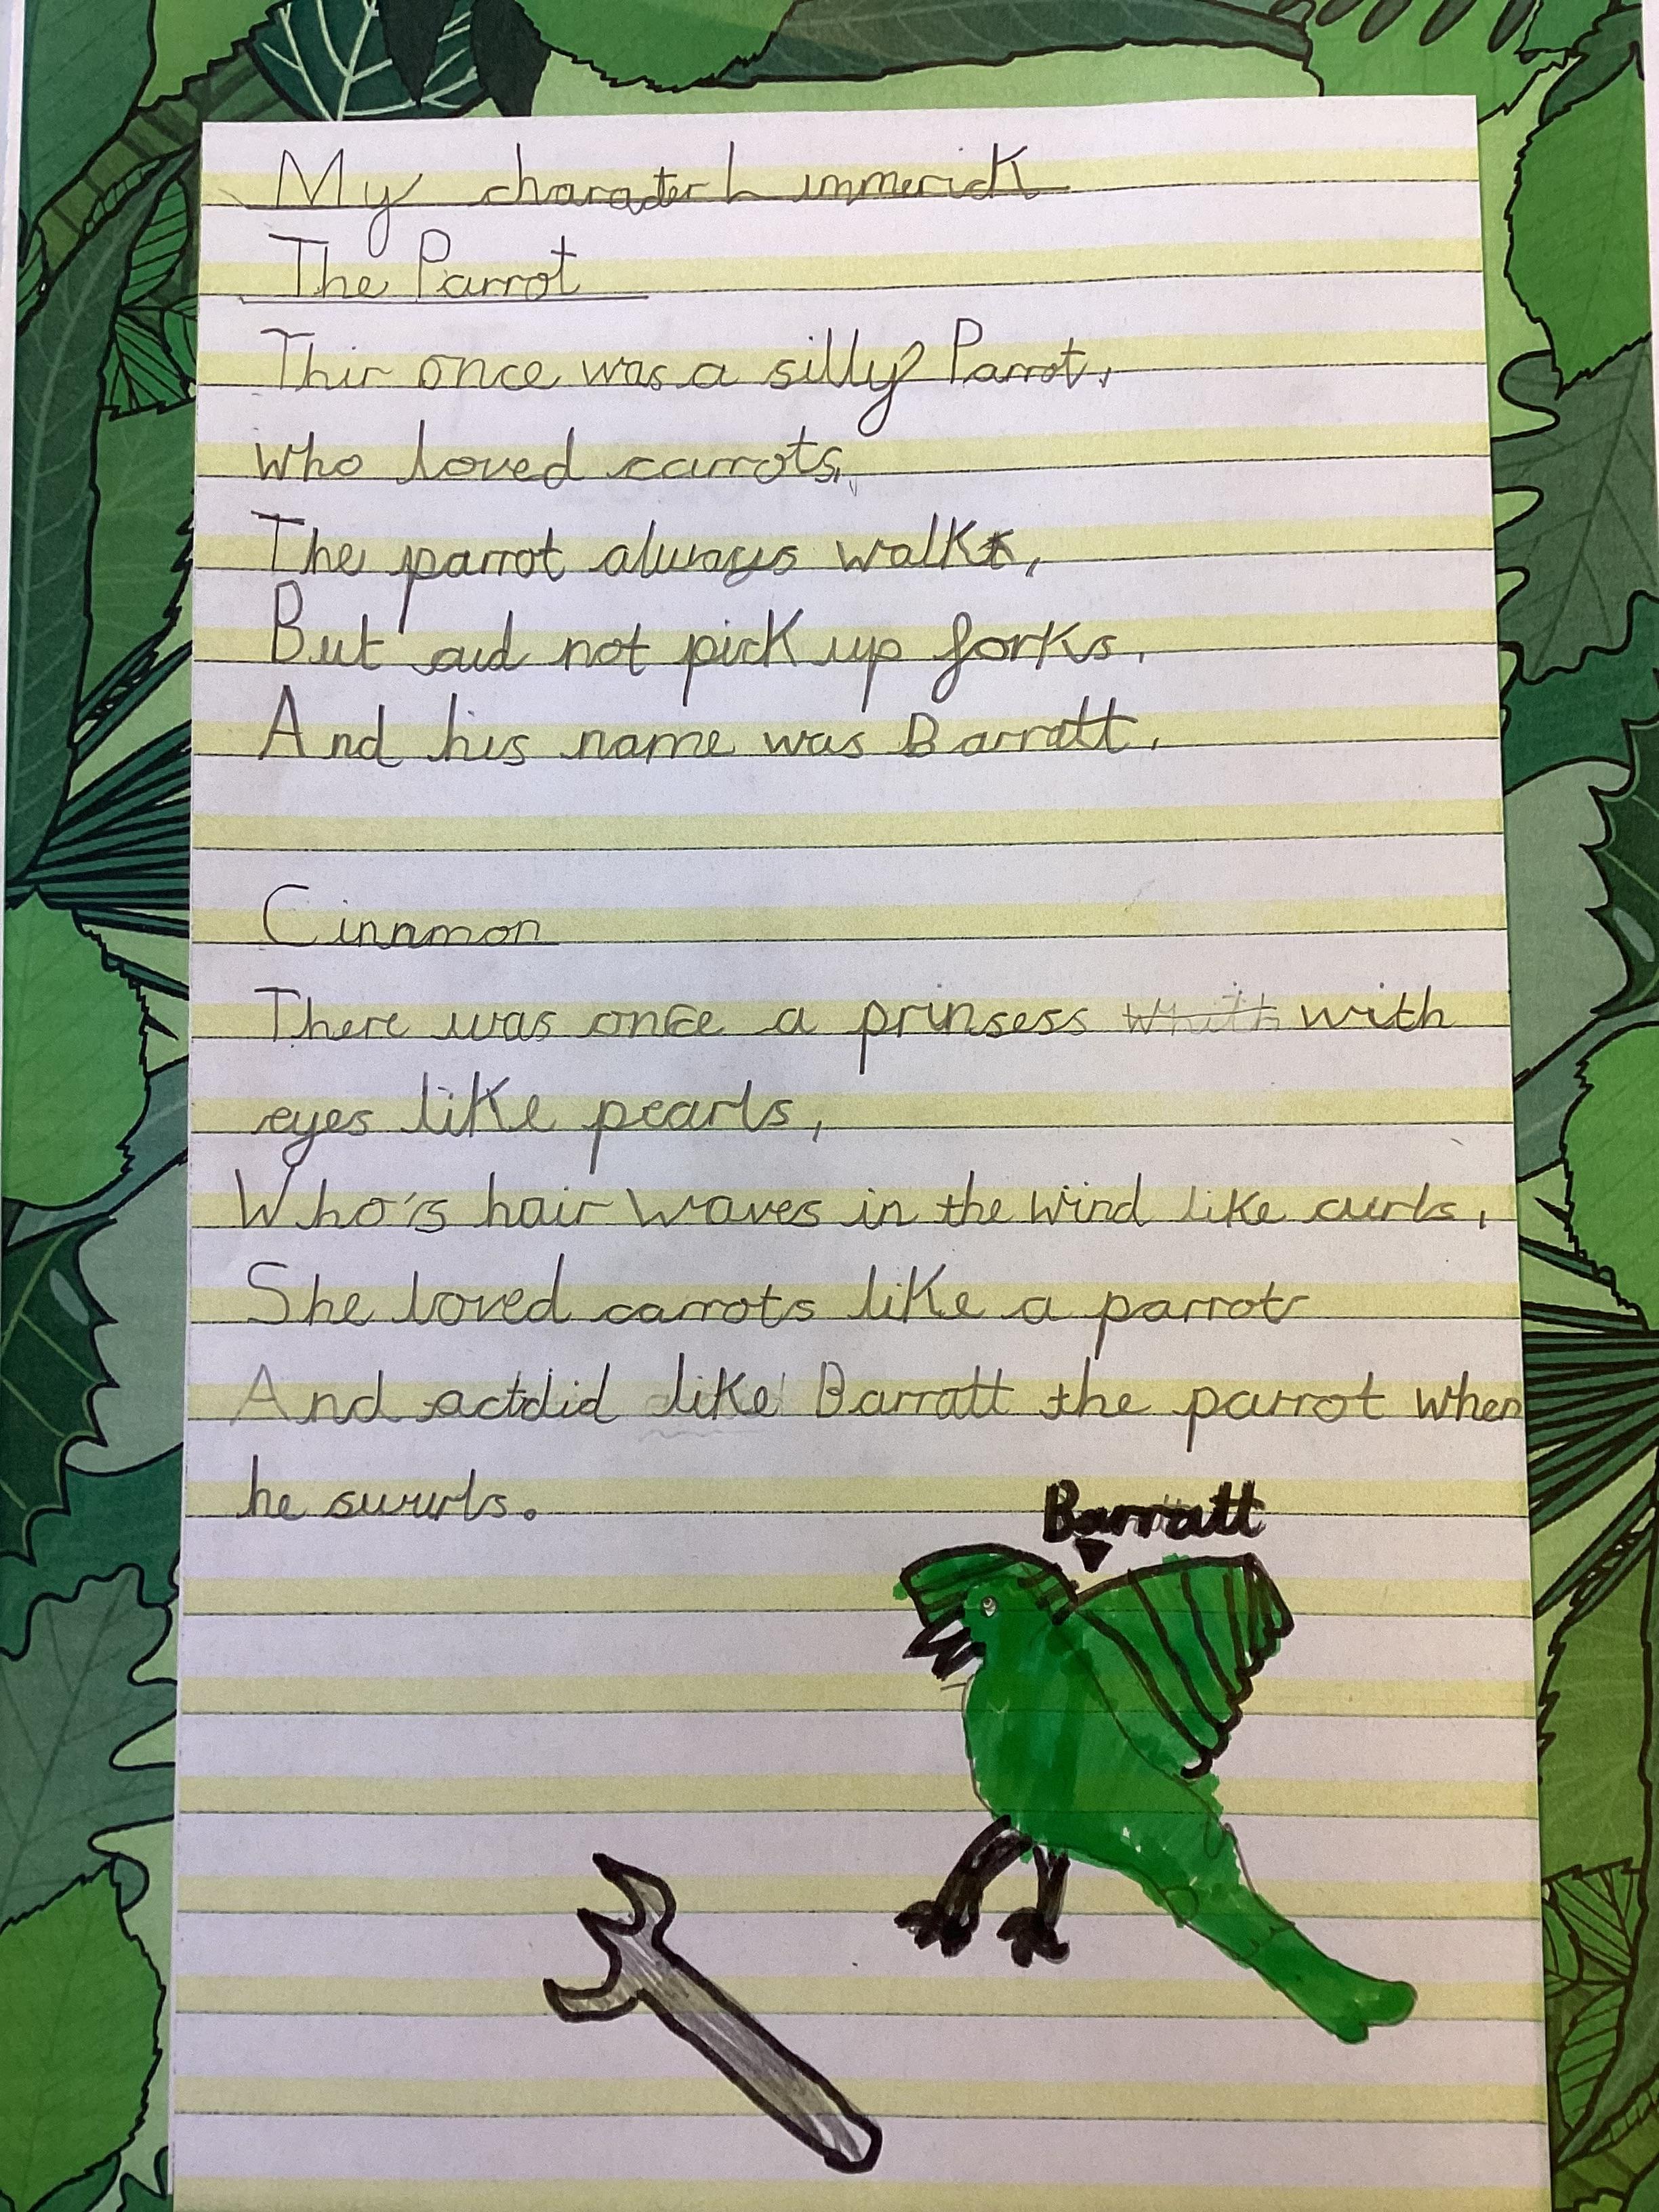 My charater Limmerick
The Parrot
Thir once was a silly Parrot,
who loved carrots,
The parrot always walks,
But did not pick up forks,
And his name was Barratt,
Cinnmon
There was once a prinsess with
eyes like pearls,
Who's hair waves in the wind like curls,
She loved carrots like a parrot
And actdid like Barratt the parrot when
he swurls.
Barratt